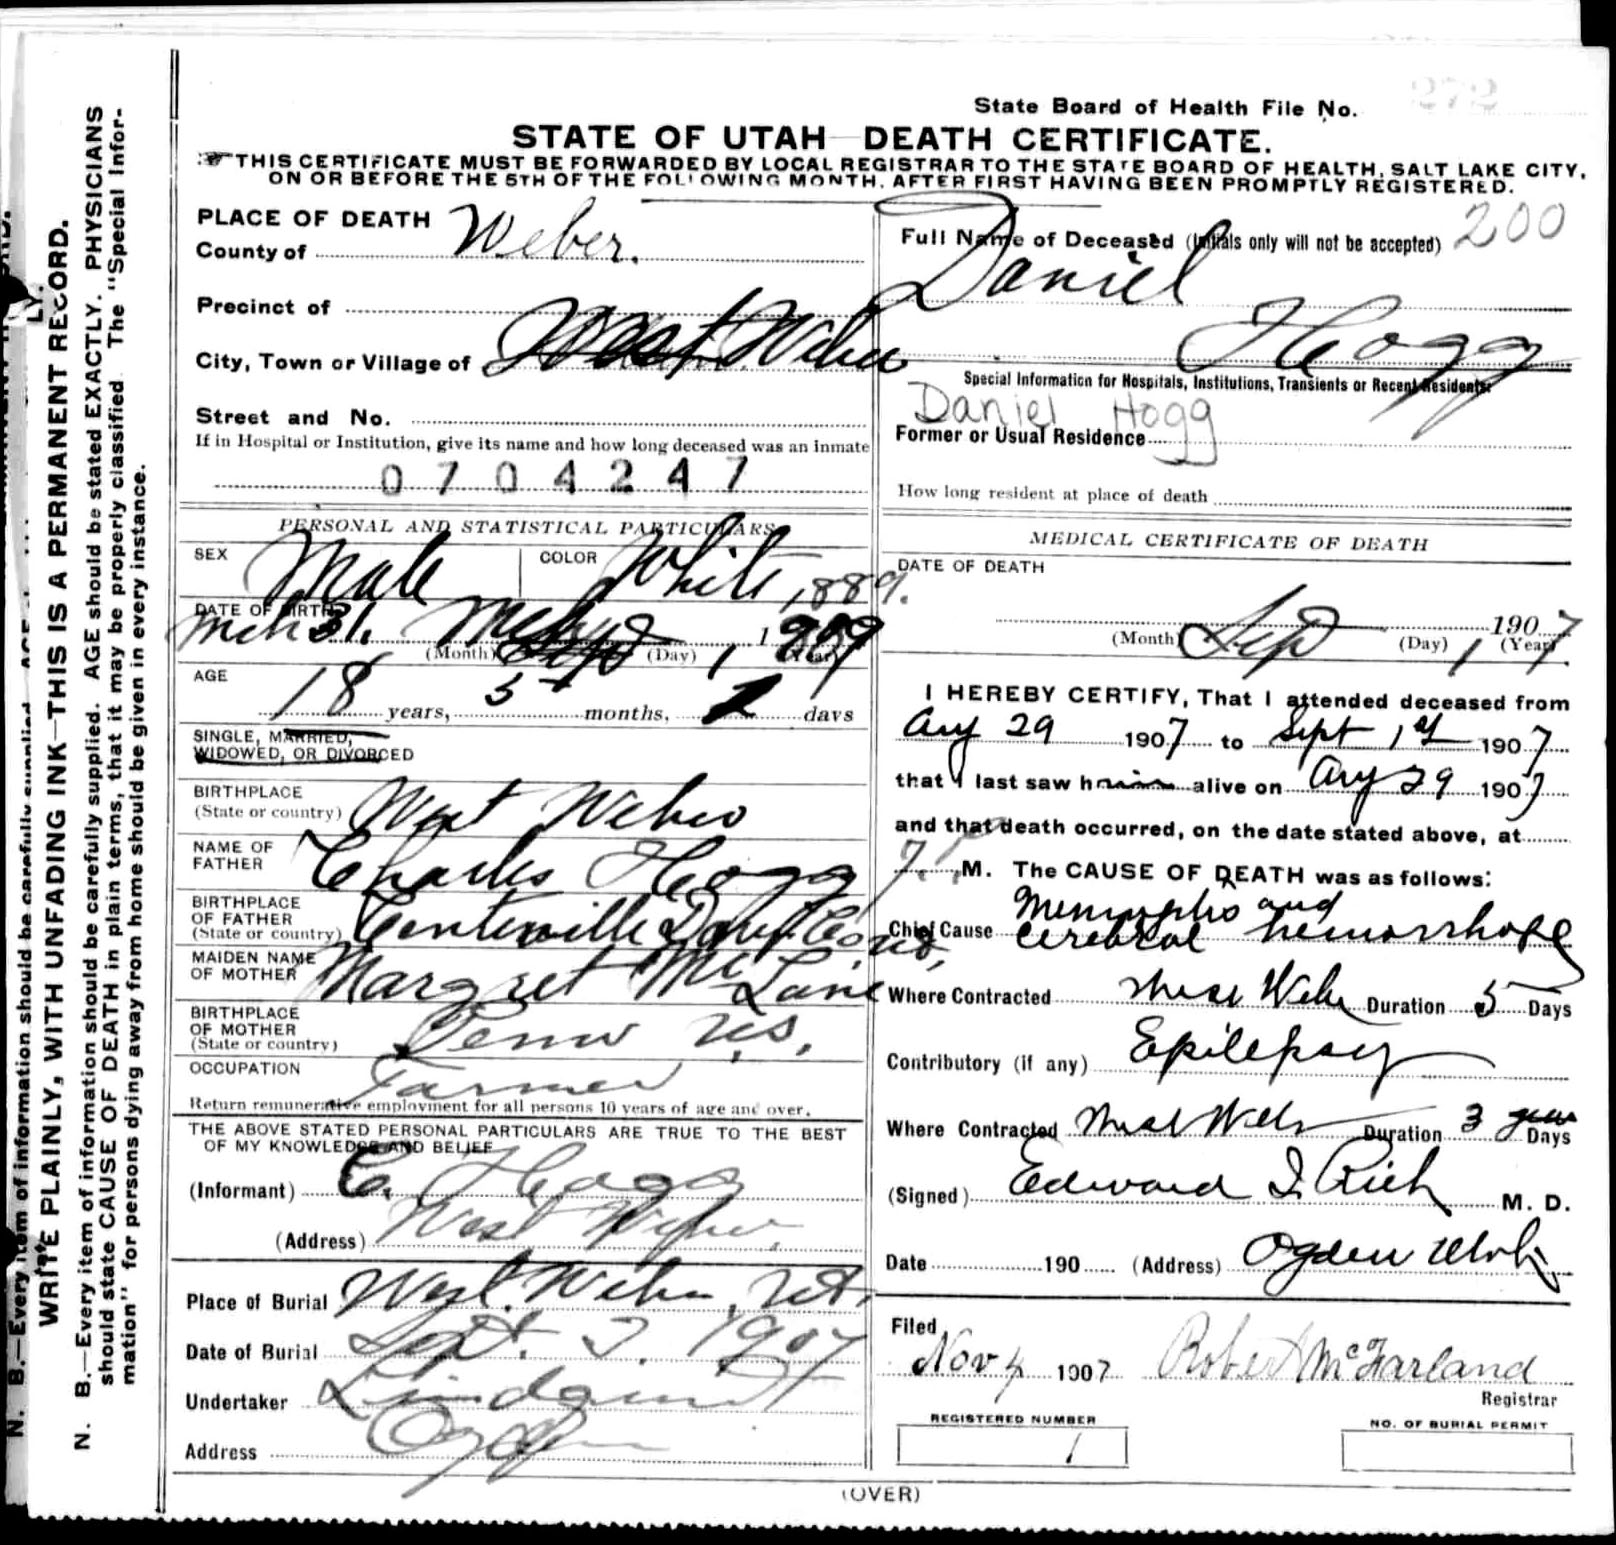 272
State Board of Health File No.
STATE OF UTAH—DEATH CERTIFICATE.
THIS CERTIFICATE MUST BE FORWARDED BY LOCAL REGISTRAR TO THE STATE BOARD OF HEALTH, SALT LAKE CITY,
ON OR BEFORE THE 5TH OF THE FOLLOWING MONTH, AFTER FIRST HAVING BEEN PROMPTLY REGISTERED.
WRITE PLAINLY, WITH UNFADING INK—THIS IS A PERMANENT RECORD.
N. B.—Every item of information should be carefully supplied. AGE should be stated EXACTLY. PHYSICIANS
should state CAUSE OF DEATH in plain terms, that it may be properly classified. The "Special Infor-
mation" for persons dying away from home should be given in every instance.
PLACE OF DEATH
County of Weber.
Precinct of
City, Town or Village of West Weber
Street and No.
If in Hospital or Institution, give its name and how long deceased was an inmate
0704247
PERSONAL AND STATISTICAL PARTICULARS
SEX Male COLOR White
1889.
DATE OF BIRTH
Mch 31.
(Month) (Day) 1 (Year)
AGE
18 years, 5 months, 1 days
SINGLE, MARRIED,
WIDOWED, OR DIVORCED
BIRTHPLACE
(State or country) West Weber
NAME OF
FATHER Charles Hogg
BIRTHPLACE
OF FATHER
(State or country) Centerville Davis Co.
MAIDEN NAME
OF MOTHER Margret McLane
BIRTHPLACE
OF MOTHER
(State or country) Penn U.S.
OCCUPATION Farmer
Return remunerative employment for all persons 10 years of age and over.
THE ABOVE STATED PERSONAL PARTICULARS ARE TRUE TO THE BEST
OF MY KNOWLEDGE AND BELIEF
(Informant) C. Hogg
(Address) West Weber.
Place of Burial West Weber, Ut.
Date of Burial Sept. 3. 1907
Undertaker
Address Ogden
200
Full Name of Deceased (Initials only will not be accepted)
Daniel
Hogg
Special Information for Hospitals, Institutions, Transients or Recent Residents:
Daniel Hogg
Former or Usual Residence
How long resident at place of death
MEDICAL CERTIFICATE OF DEATH
DATE OF DEATH
(Month) Sep (Day) 1 1907 (Year)
I HEREBY CERTIFY, That I attended deceased from
Aug 29 1907 to Sept 1st 1907
that I last saw him alive on Aug 29 1907
and that death occurred, on the date stated above, at
7. P M. The CAUSE OF DEATH was as follows:
Chief Cause and
cerebral hemorrhage
Where Contracted West Weber Duration 5 Days
Contributory (if any) Epilepsy
Where Contracted West Weber Duration 3 years Days
(Signed) Edward I. Rich M. D.
Date 190 (Address) Ogden Utah
Filed
Nov 4 1907 Robert McFarland
Registrar
REGISTERED NUMBER
1
NO. OF BURIAL PERMIT
(OVER)